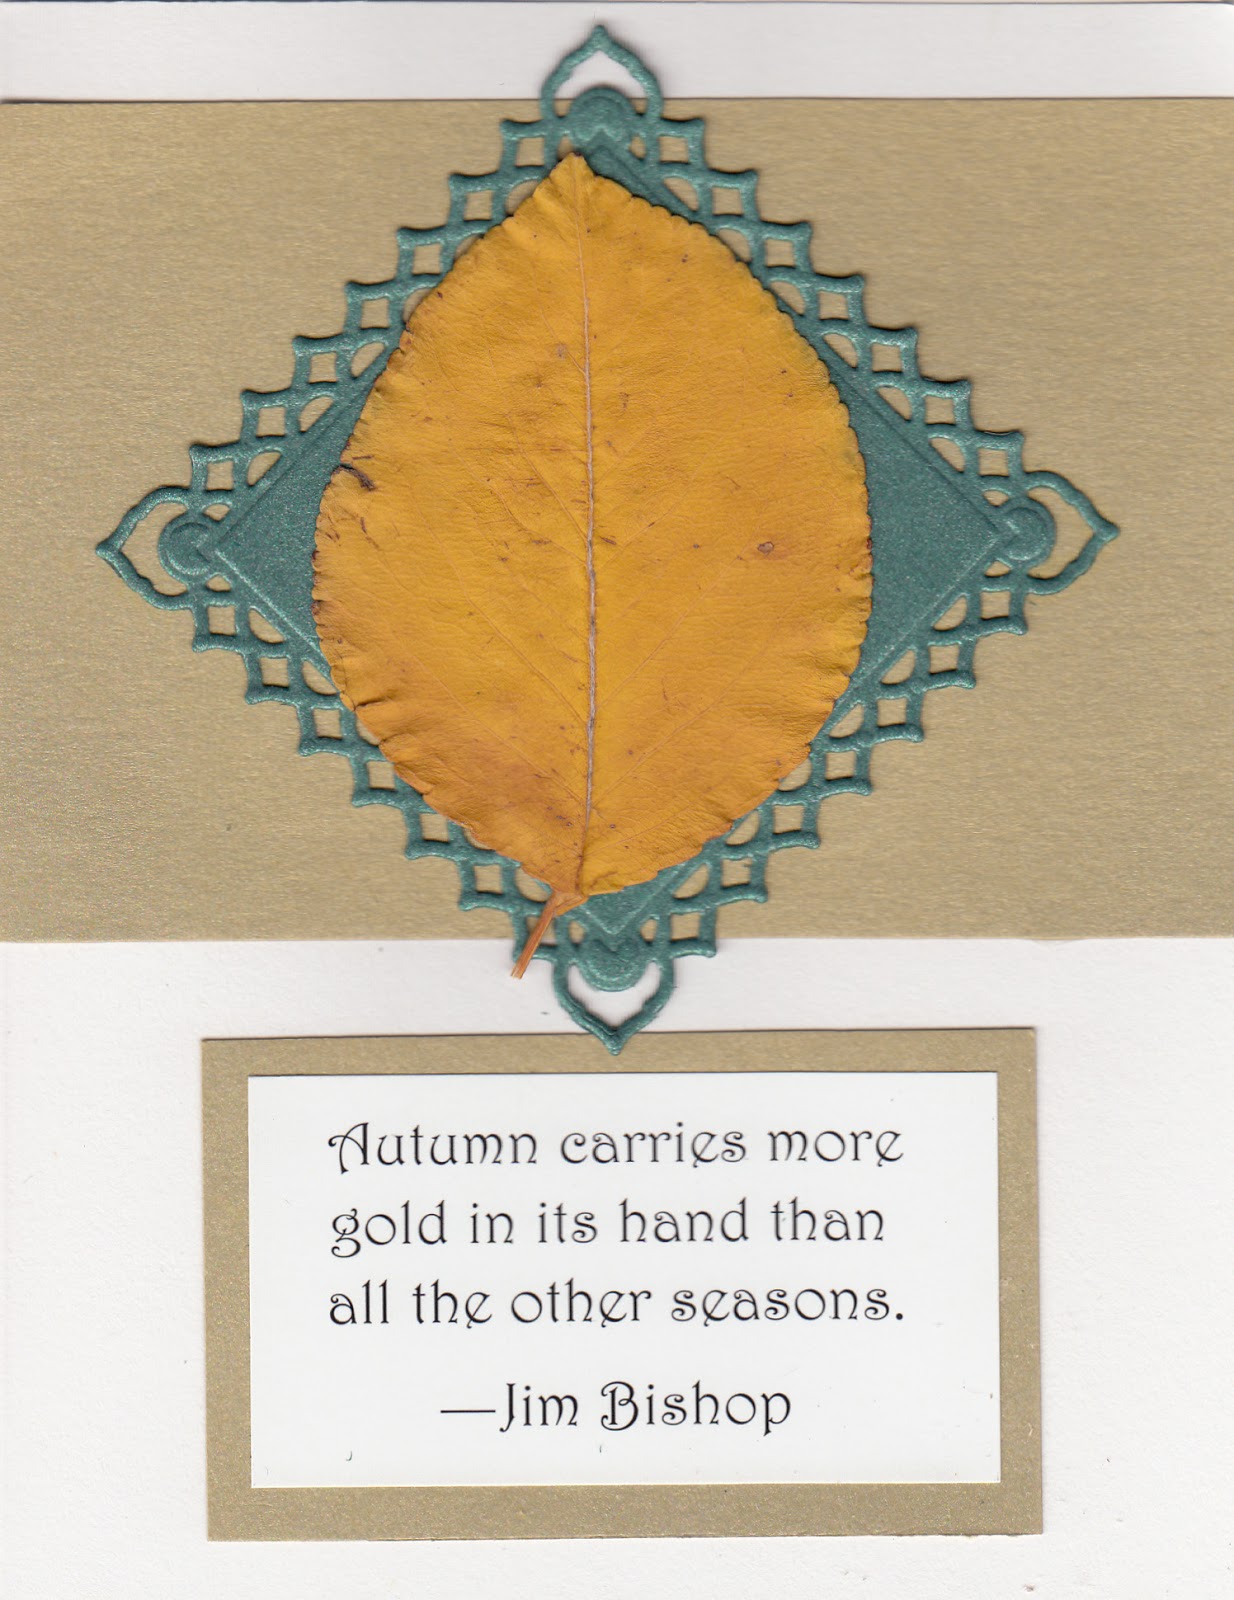 Autumn carries more
gold in its hand than
all the other seasons.
—Jim Bishop